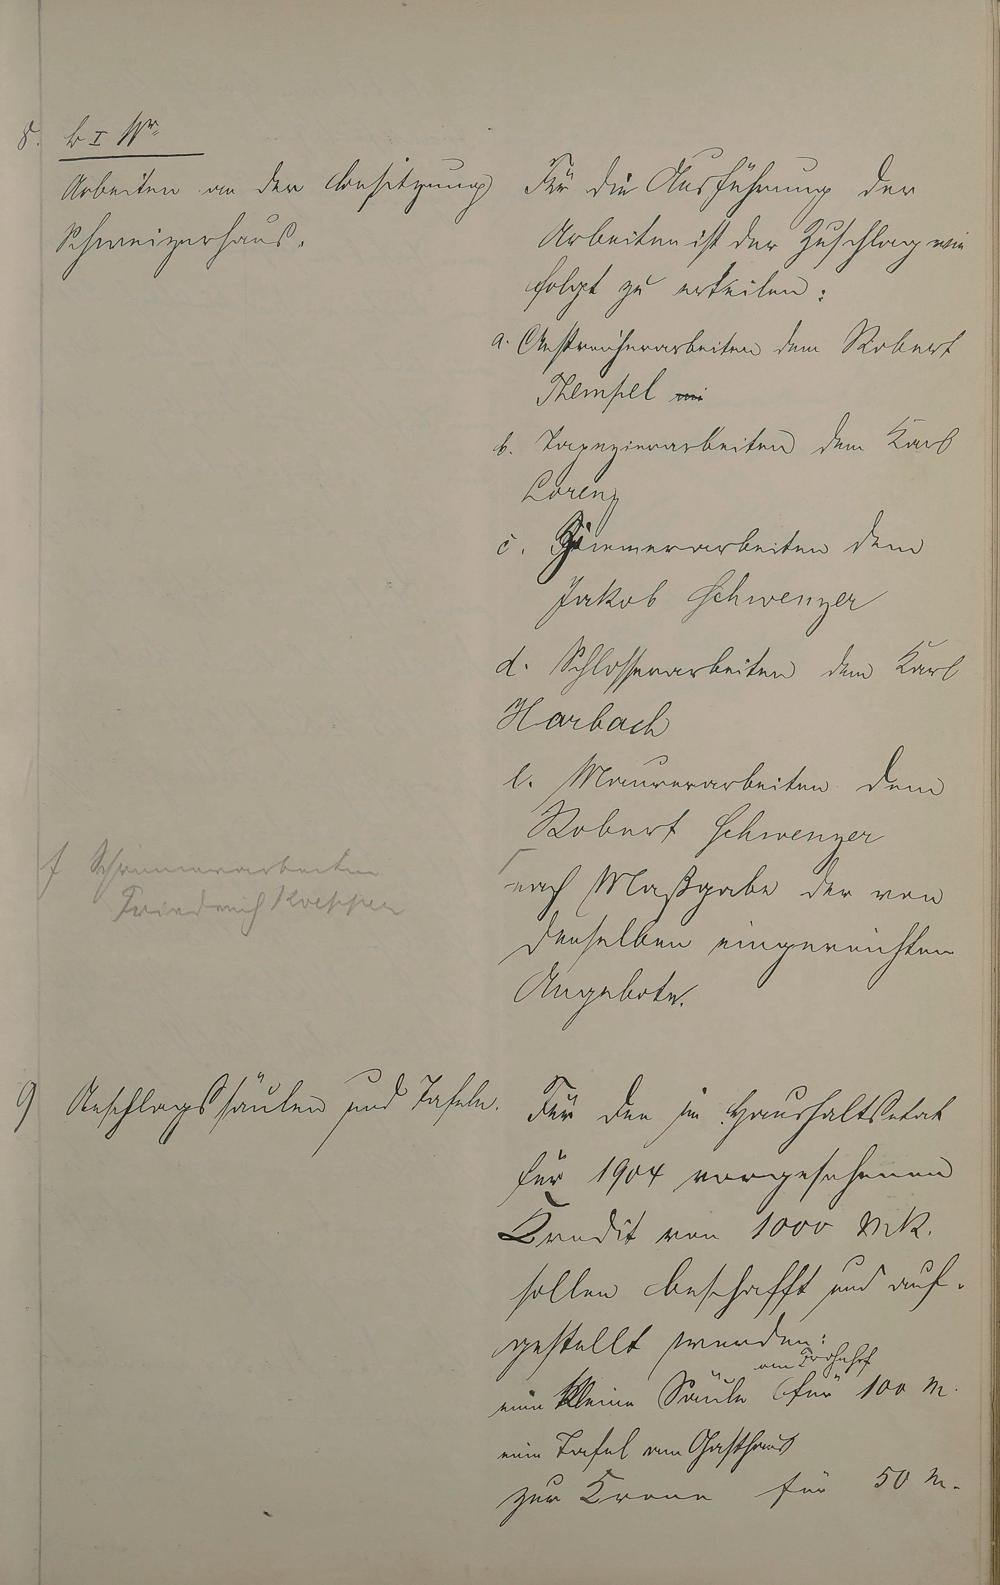 8. b I Nr
Arbeiten an der Besitzung
Schweizerhaus.
Für die Ausführung der
Arbeiten ist der Zuschlag wie
folgt zu erteilen:
a. Anstreicherarbeiten dem Robert
Thempel
b. Tapezierarbeiten dem Karl
Lorenz
c. Zimmerarbeiten dem
Jakob Schwenzer
d. Schlosserarbeiten dem Karl
Harbach
e. Maurerarbeiten dem
Robert Schwenzer
f Schreinerarbeiten
Friedrich Koeppen
nach Maßgabe der von
denselben eingereichten
Angebote.
9 Anschlagssäulen und Tafeln.
Für den im Haushaltsetat
für 1904 vorgesehenen
Kredit von 1000 Mk.
sollen beschafft und auf-
gestellt werden:
am Frohnhof
eine kleine Säule für 100 M.
eine Tafel am Gasthaus
zur Krone für 50 M.